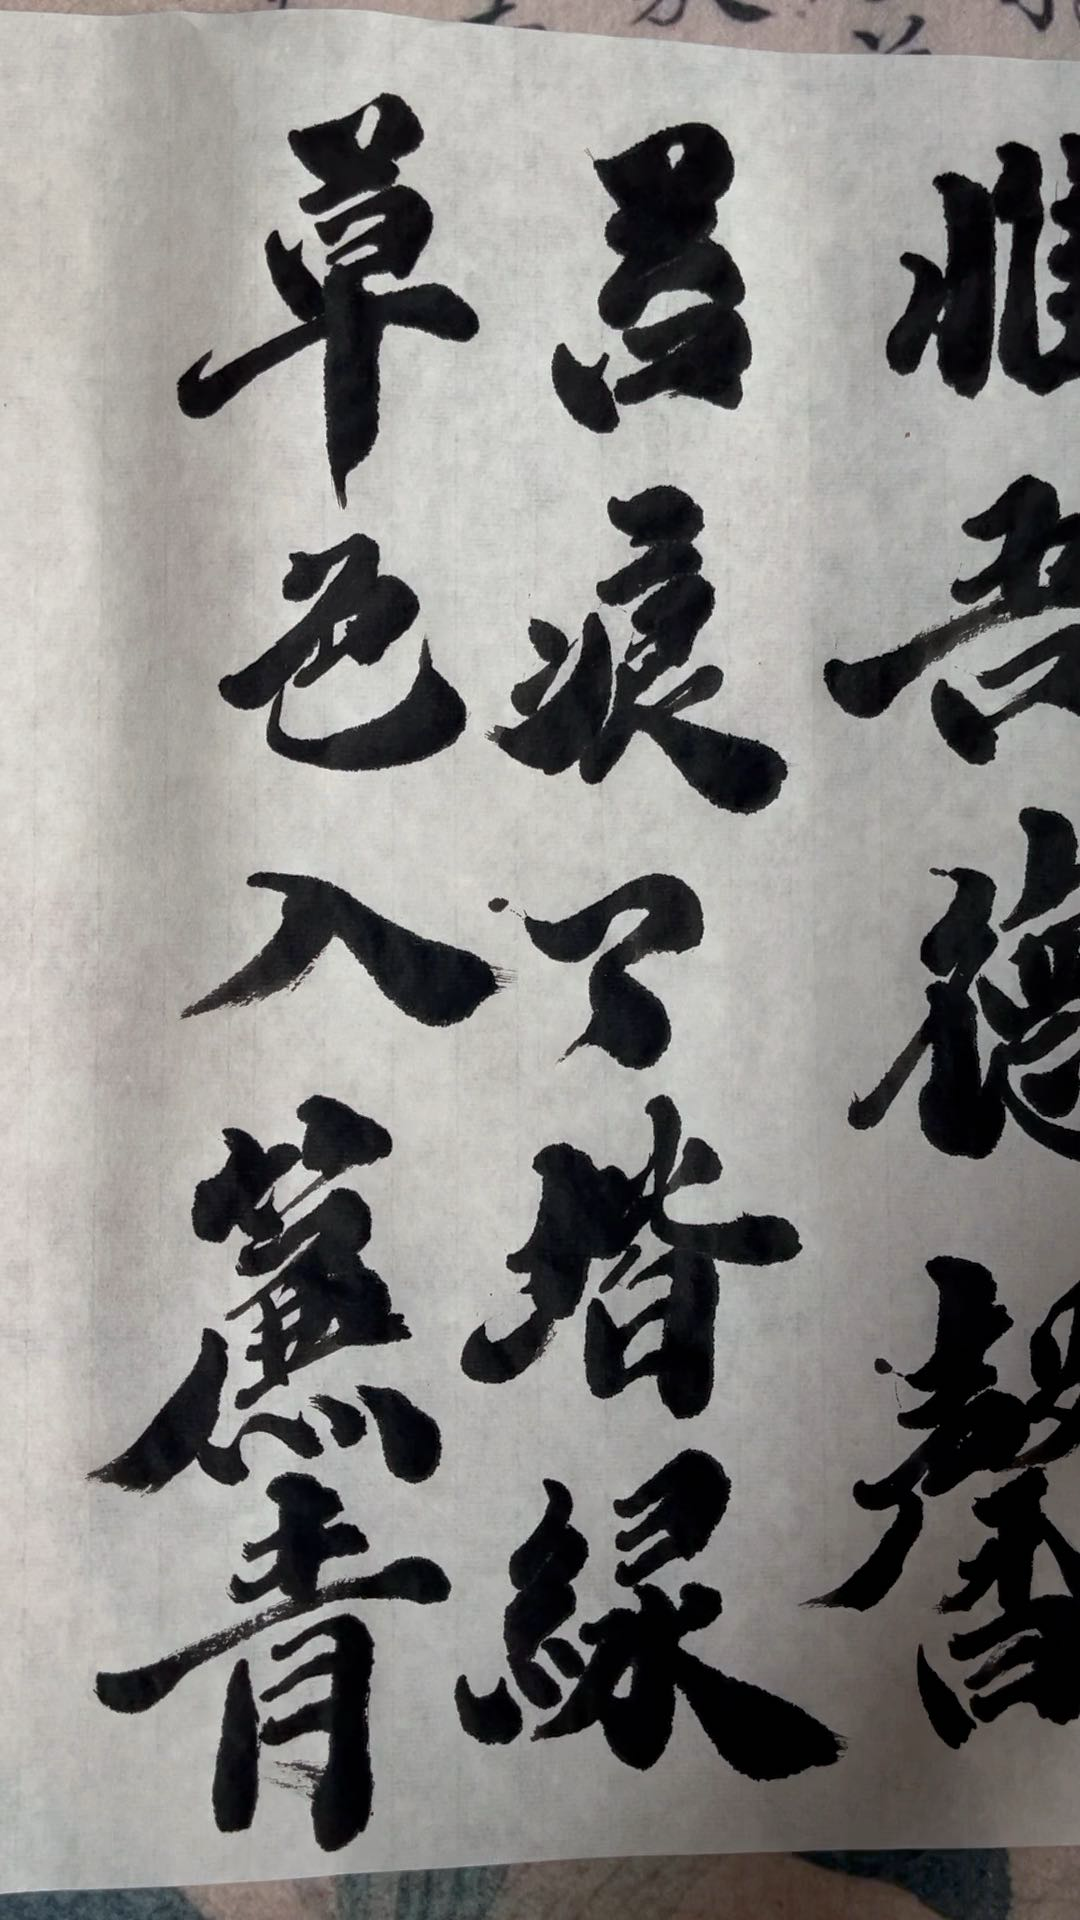 惟吾德馨
苔痕了階緑
草色入簾青